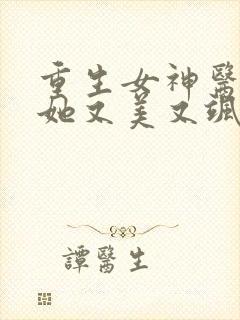 重生女神醫
她又美又颯
譚醫生